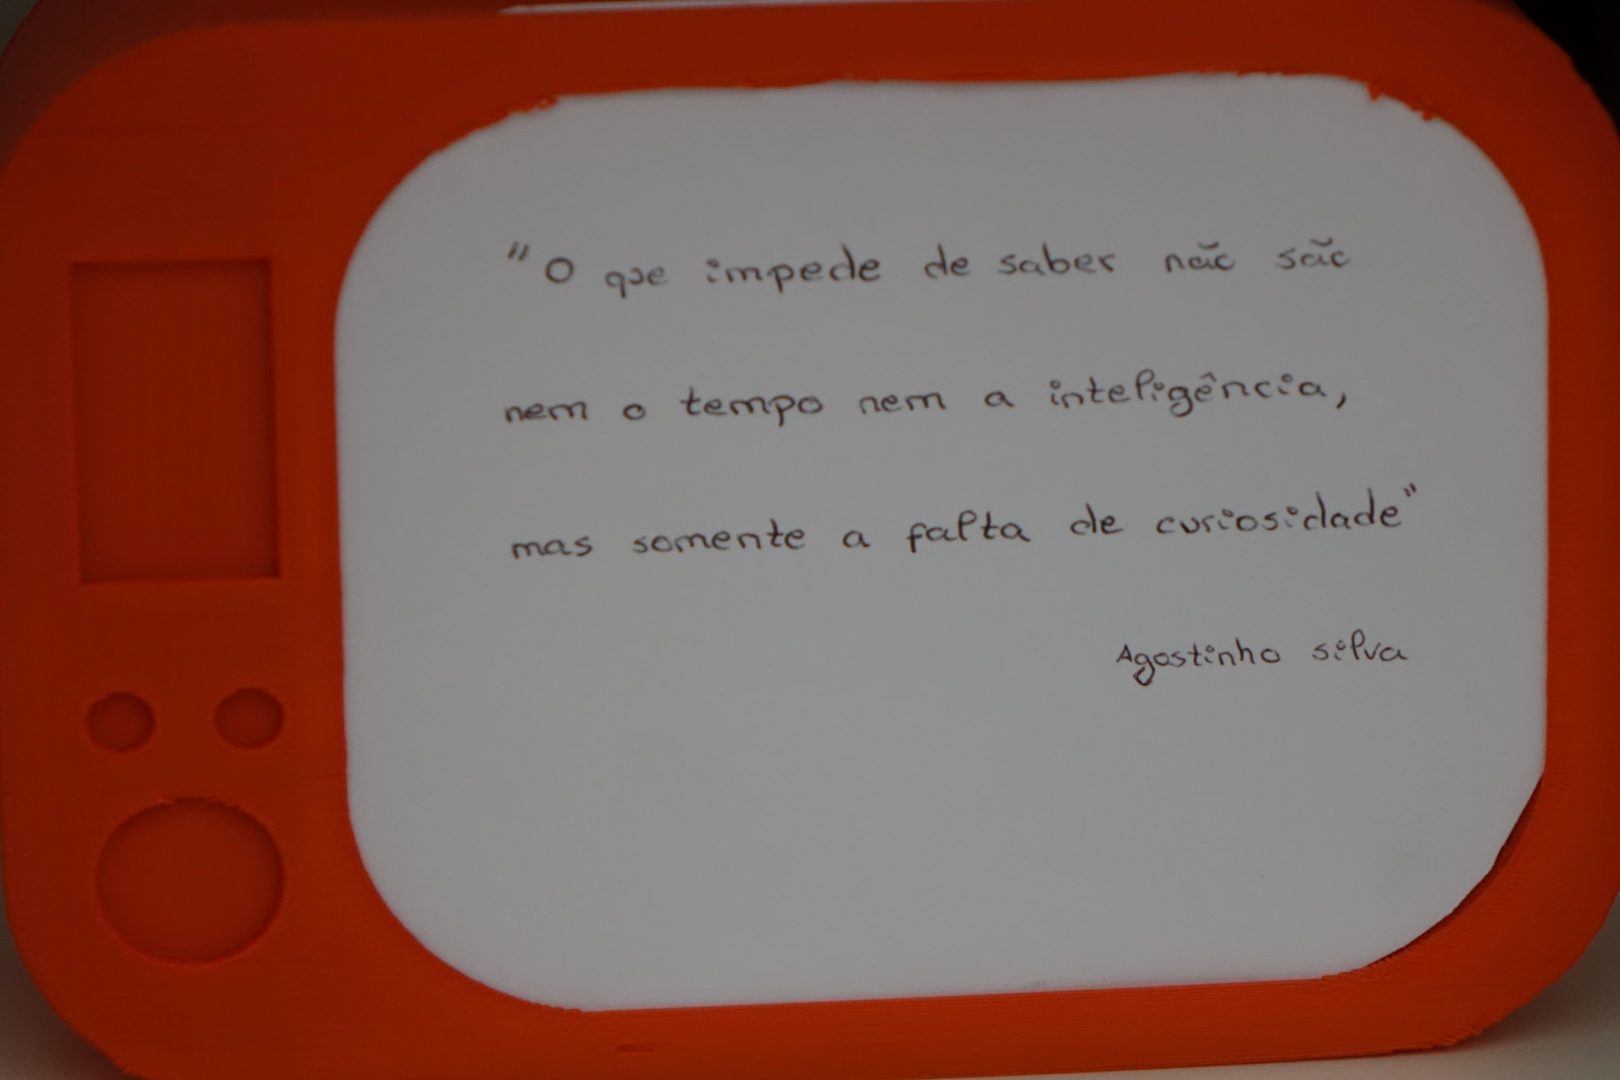 "O que impede de saber não são
nem o tempo nem a inteligência,
mas somente a falta de curiosidade"
Agostinho silva